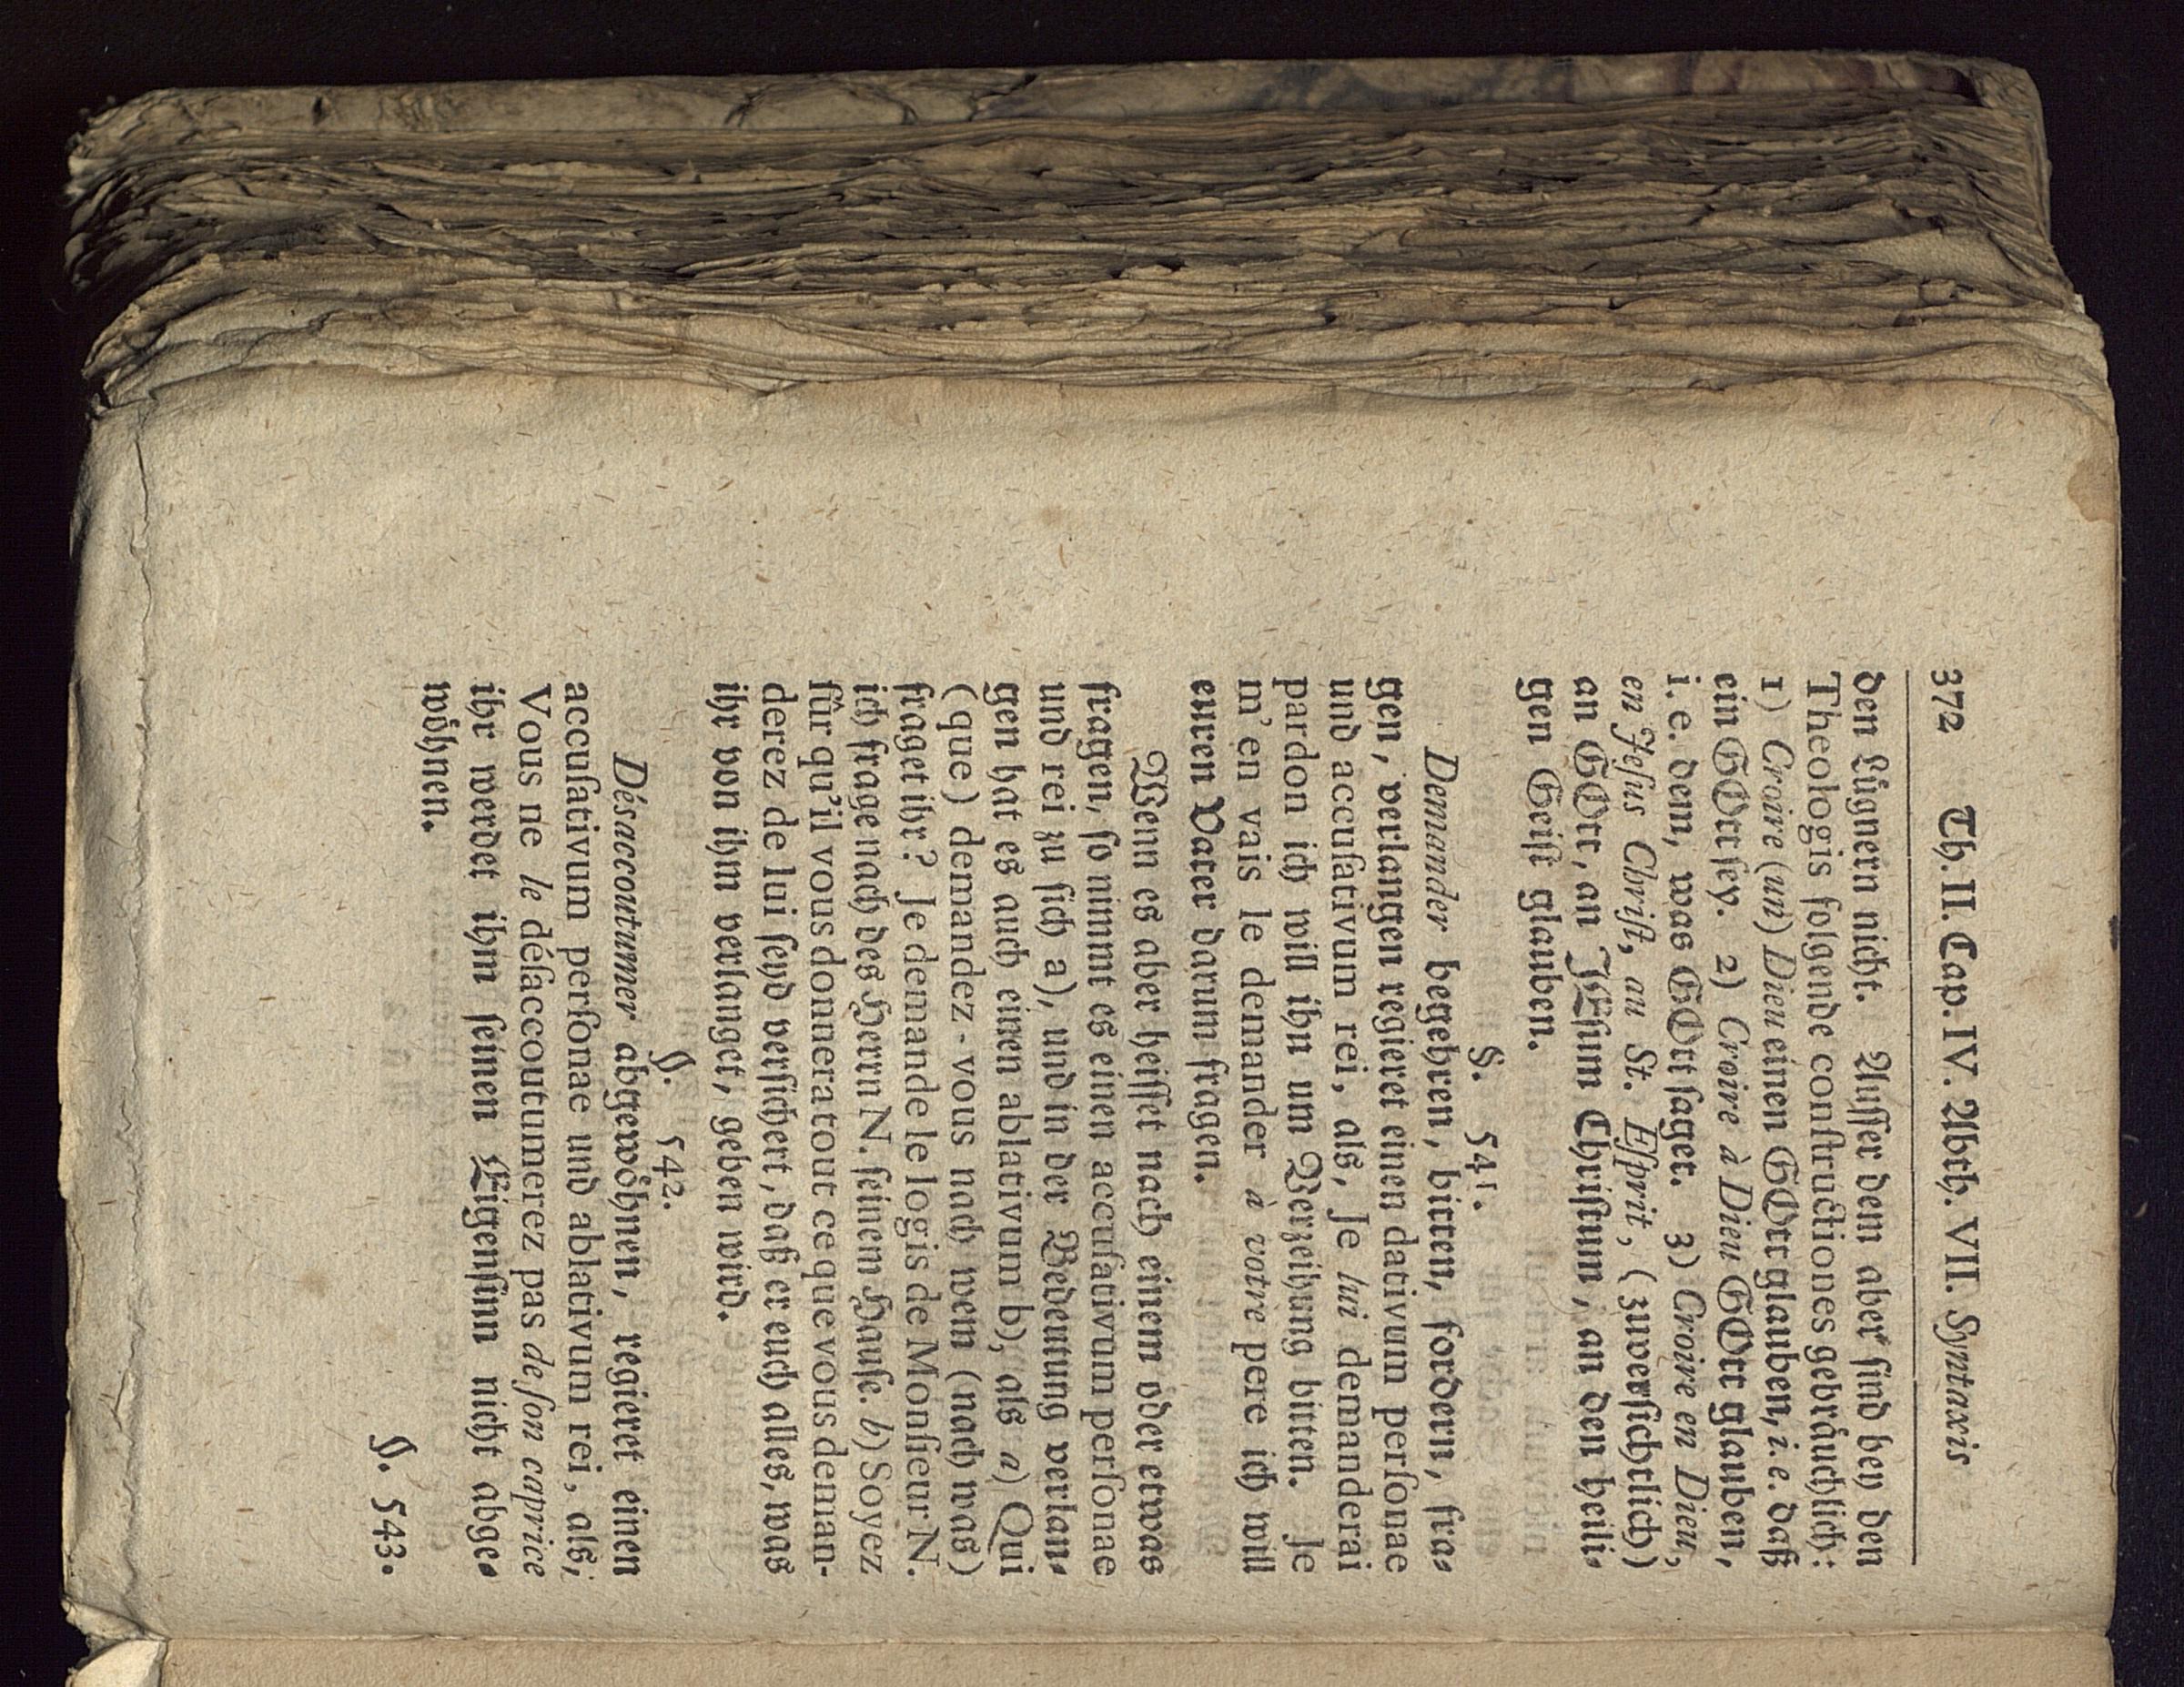 372 Th. II. Cap. IV. Abth. VII. Syntaxis
den Lügnern nicht. Ausser dem aber sind bey den
Theologis folgende constructiones gebräuchlich:
1) Croire (un) Dieu einen GOtt glauben, i. e. daß
ein GOtt sey. 2) Croire à Dieu GOtt glauben,
i. e. dem, was GOtt saget. 3) Croire en Dieu,
en Jesus Christ, au St. Esprit, (zuversichtlich)
an GOtt, an JEsum Christum, an den heili-
gen Geist glauben.
§. 541.
Demander begehren, bitten, fordern, fra-
gen, verlangen regieret einen dativum personae
und accusativum rei, als, Je lui demanderai
pardon ich will ihn um Verzeihung bitten. Je
m'en vais le demander à votre pere ich will
euren Vater darum fragen.
Wenn es aber heisset nach einem oder etwas
fragen, so nimmt es einen accusativum personae
und rei zu sich a), und in der Bedeutung verlan-
gen hat es auch einen ablativum b), als a) Qui
(que) demandez-vous nach wem (nach was)
fraget ihr? Je demande le logis de Monsieur N.
ich frage nach des Herrn N. seinem Hause. b) Soyez
sûr qu'il vous donnera tout ce que vous deman-
derez de lui seyd versichert, daß er euch alles, was
ihr von ihm verlanget, geben wird.
§. 542.
Désaccoutumer abgewöhnen, regieret einen
accusativum personae und ablativum rei, als,
Vous ne le désaccoutumerez pas de son caprice
ihr werdet ihm seinen Eigensinn nicht abge-
wöhnen.
§. 543.